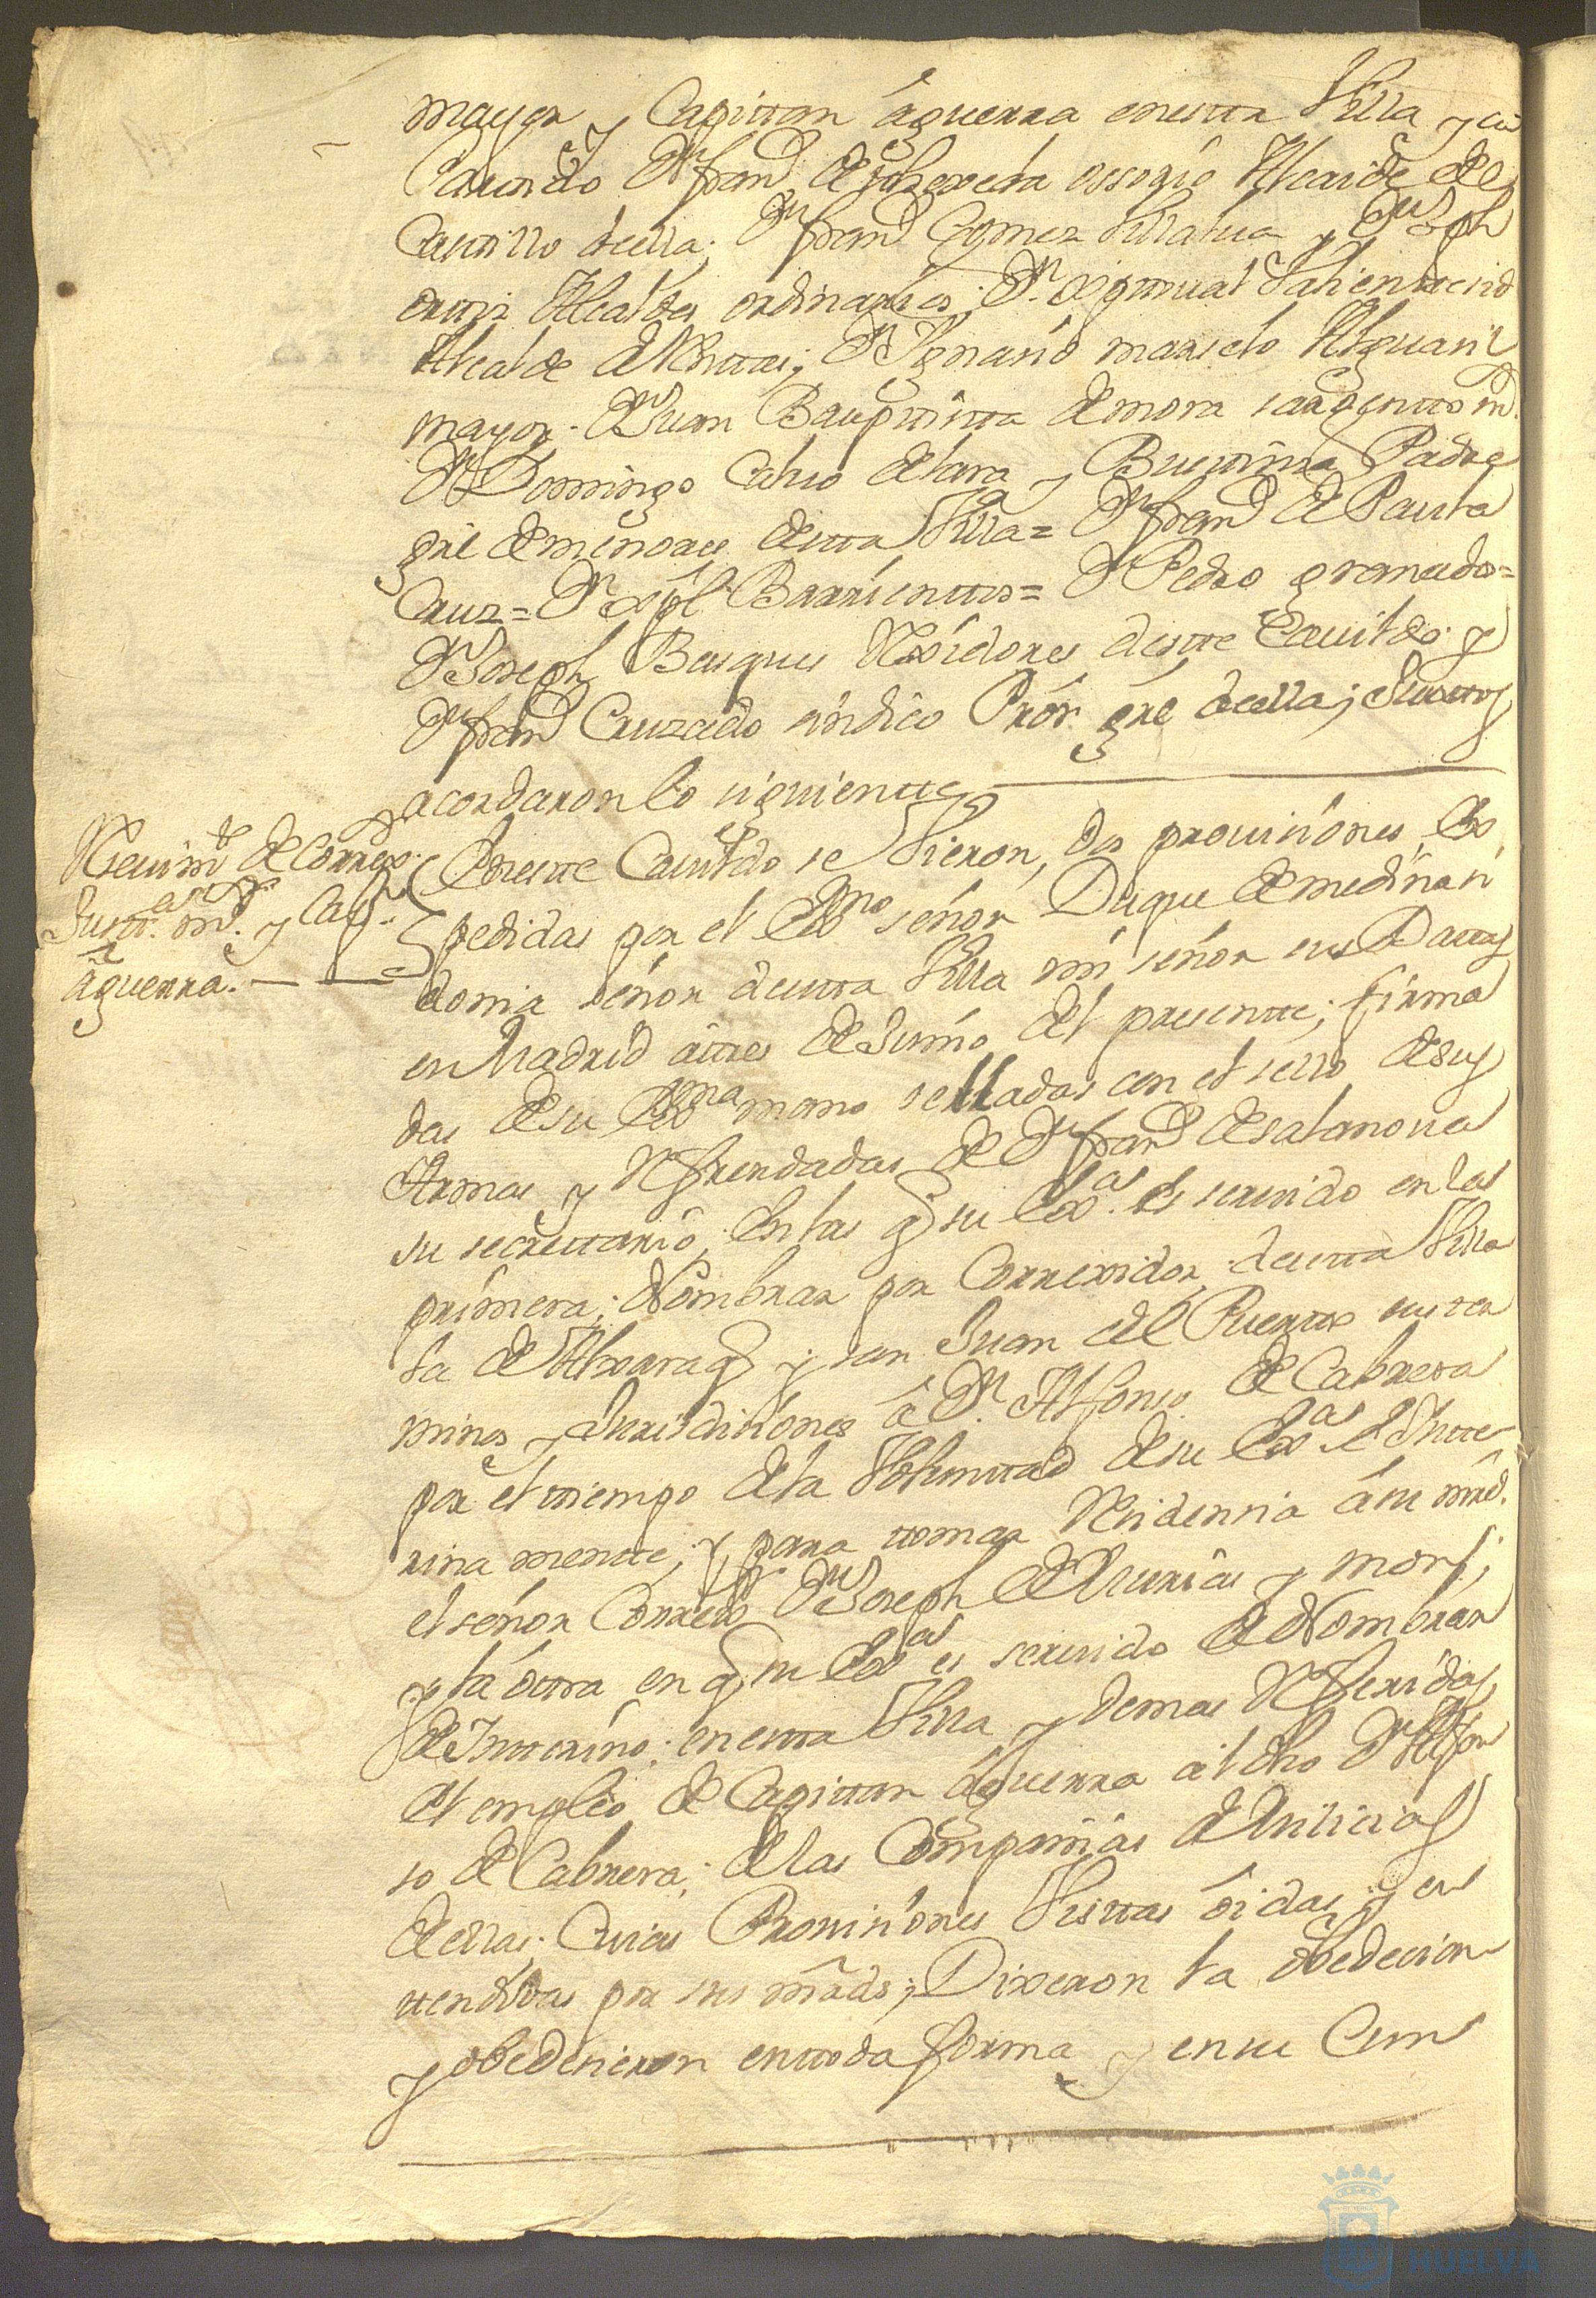 mayor y Capittan â guerra enestta Villa y su
Partido Dn Franco de esoxeda ossorio Alcaide del
Castillo deella; Dn Franco Gomez Villalua y Dn Joseph
orttiz Alcaldes ordinarios; Dn Xpttoual Valiente
Alcalde de Menttas; Dn Ignacio marselo Alguasil
mayor. Dn Juan Bauptistta de mora sargentto mor
Dn Domingo Calvo de lara y Buenttina Padre
gral de menores destta Villa = Dn Franco de Paula
Cruz = Dn Xptl Barrienttos = Dn Pedro granado =
Dn Joseph Basques Rexidores destte Cauildo y
Dn Franco Cruzado sindico Pror gral deella; Junttos
acordaron lo siguientte
Reciuimto de Correxor
Justa mr y Capn
â guerra.
Enestte Cauildo se Vieron, dos prouisiones, Ex
pedidas por el Exmo señor Duque de medinasi
donia señor destta Villa mi señor sus Dattas
en Madrid âttres de Junio del presentte; firma
das de su Exma mano selladas con el sello de sus
Armas y Refrendadas de Dn Franco de salanoua
su secrettario; En las q su Exa es seruido en las
primera; Nombrar por Correxidor destta Villa
la de Alxaraq y san Juan del Puertto sus ter
minos y Jurisdiciones â Dn Alfonso de Cabrera
por el tiempo de la Voluntad de su Exa E Intte
rina mente; y para ttomar Residencia â su mrd.
el señor Correxor Dn Joseph de Arurias y mori;
y la ôttra en q su Exa es seruido de Nombrar
de Intterino; enestta Villa y demas Referidas
el empleo de Capittan â guerra âl dho Dn Alfon
so de Cabrera; de las Compañias de Milicias
de ellas; Cuias Prouisiones Visttas ôidas y en
ttendidas por sus mrds; Dixeron la obedecian
y obedecieron en ttoda forma y en su Cum
HUELVA